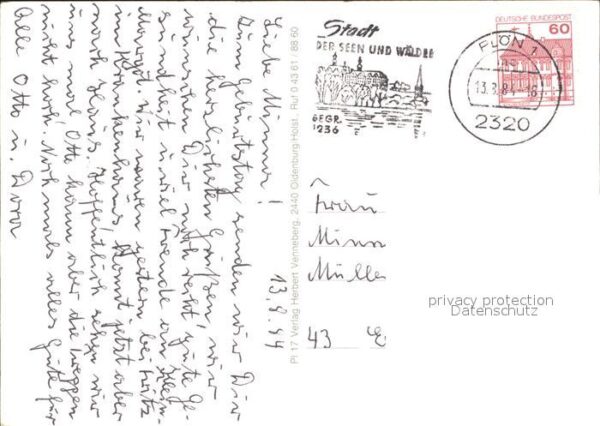 13.9.84
Liebe Minna!
Zum Geburtstag senden wir Dir
die herzlichsten Grüßen, wir
wünschen Dir noch recht gute Ge-
sundheit u. viel Freude an
Wir waren gestern bei Fritz
im Krankenhaus kommt jetzt aber
nach Haus. Hoffentlich sehen wir
uns mal Otto kann aber die Treppen
nicht hoch. Nochmals alles Gute für
alle Otto u. Dora
Pl 17 Verlag Herbert Venneberg, 2440 Oldenburg/Holst. Ruf 0 43 61 - 88 60
Stadt
DER SEEN UND WÄLDER
GEGR.
1236
PLÖN 1
2320
DEUTSCHE BUNDESPOST
60
Frau
Minna
Müller
43 E
privacy protection
Datenschutz